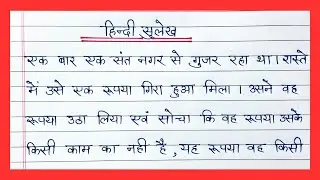 हिन्दी सुलेख
एक बार एक संत नगर से गुजर रहा था। रास्ते
में उसे एक रुपया गिरा हुआ मिला। उसने वह
रुपया उठा लिया एवं सोचा कि वह रुपया उसके
किसी काम का नही है, यह रुपया वह किसी